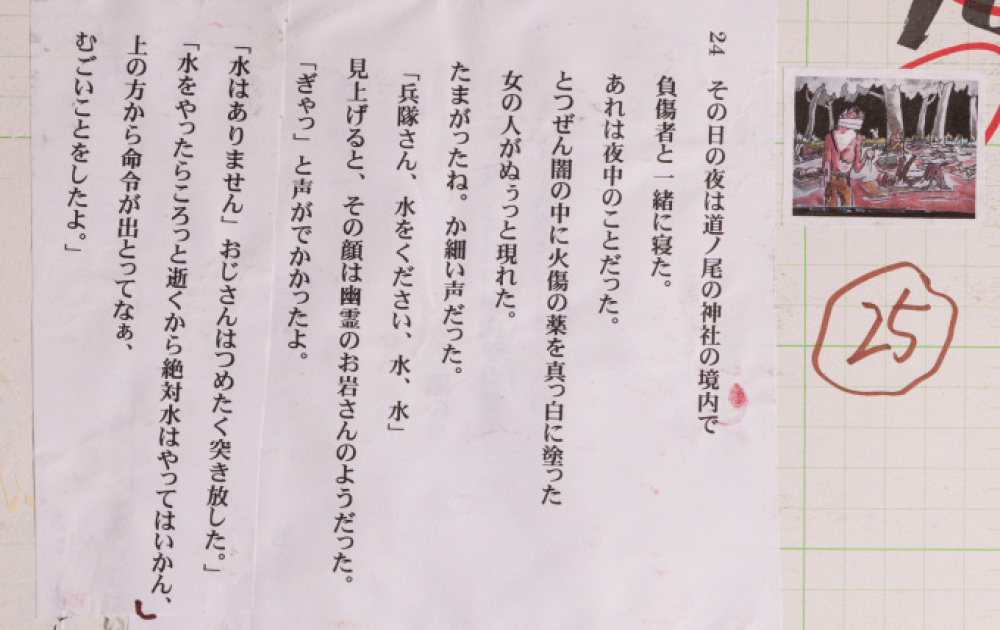 24 その日の夜は道ノ尾の神社の境内で
負傷者と一緒に寝た。
あれは夜中のことだった。
とつぜん闇の中に火傷の薬を真っ白に塗った
女の人がぬぅっと現れた。
たまがったね。か細い声だった。
「兵隊さん、水をください、水、水」
見上げると、その顔は幽霊のお岩さんのようだった。
「ぎゃっ」と声がでかかったよ。
「水はありません」おじさんはつめたく突き放した。」
「水をやったらころっと逝くから絶対水はやってはいかん、
上の方から命令が出とってなぁ、
むごいことをしたよ。」
25